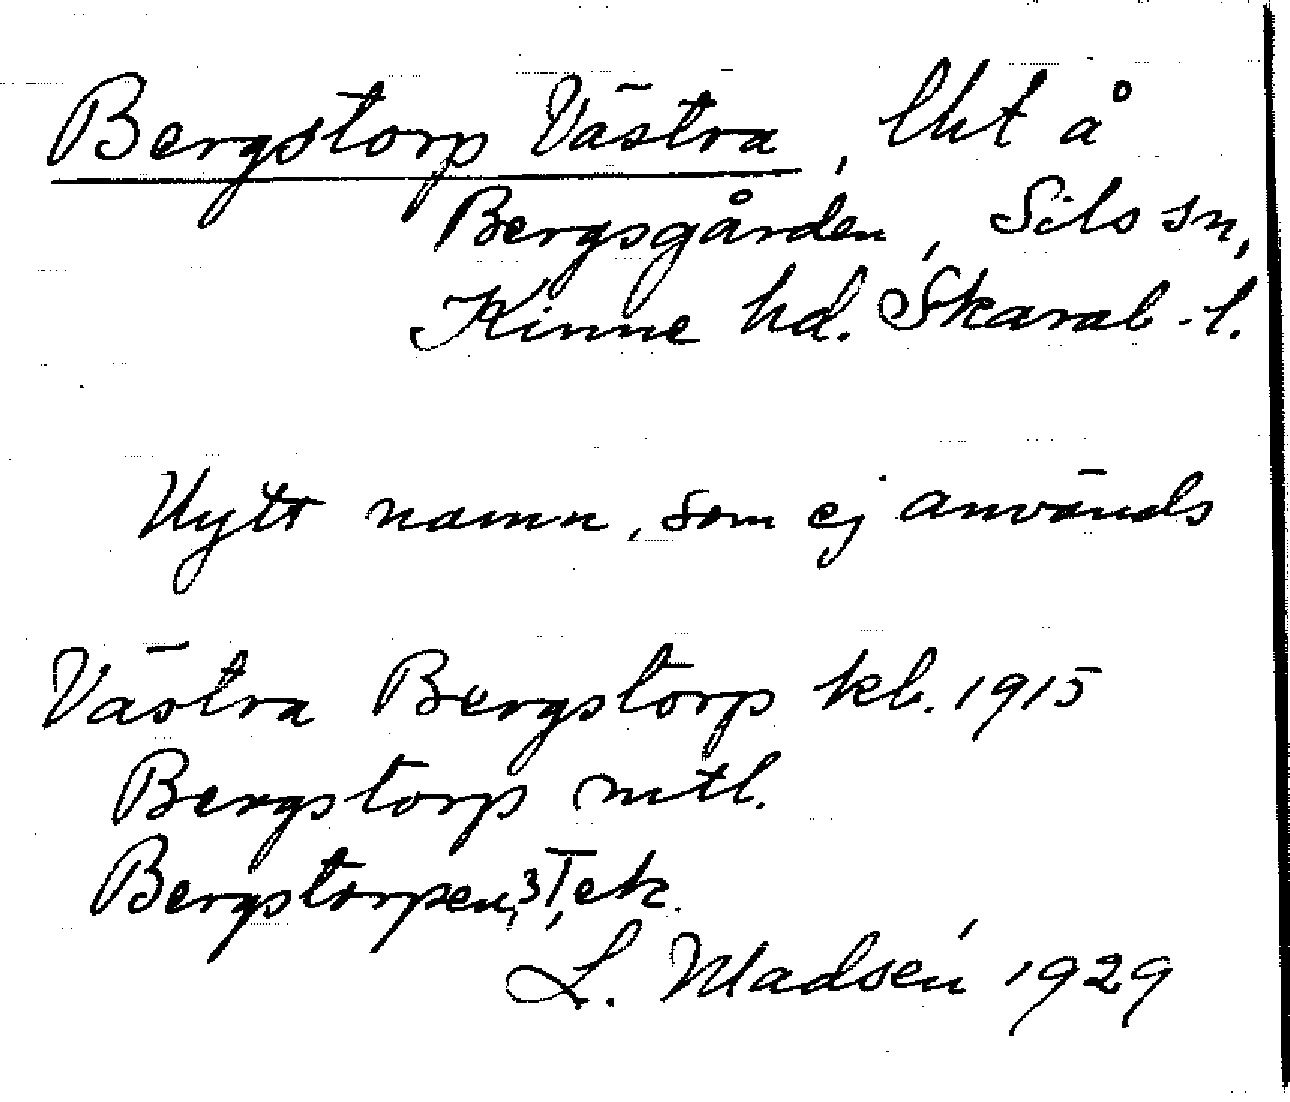 Bergstorp Västra, lht å
Bergsgården, Sils sn,
Kinne hd. Skarab. l.
Nytt namn, som ej används
Västra Bergstorp kb. 1915
Bergstorp mtl.
Bergstorpen, 3 T, ek.
L. Madsén 1929